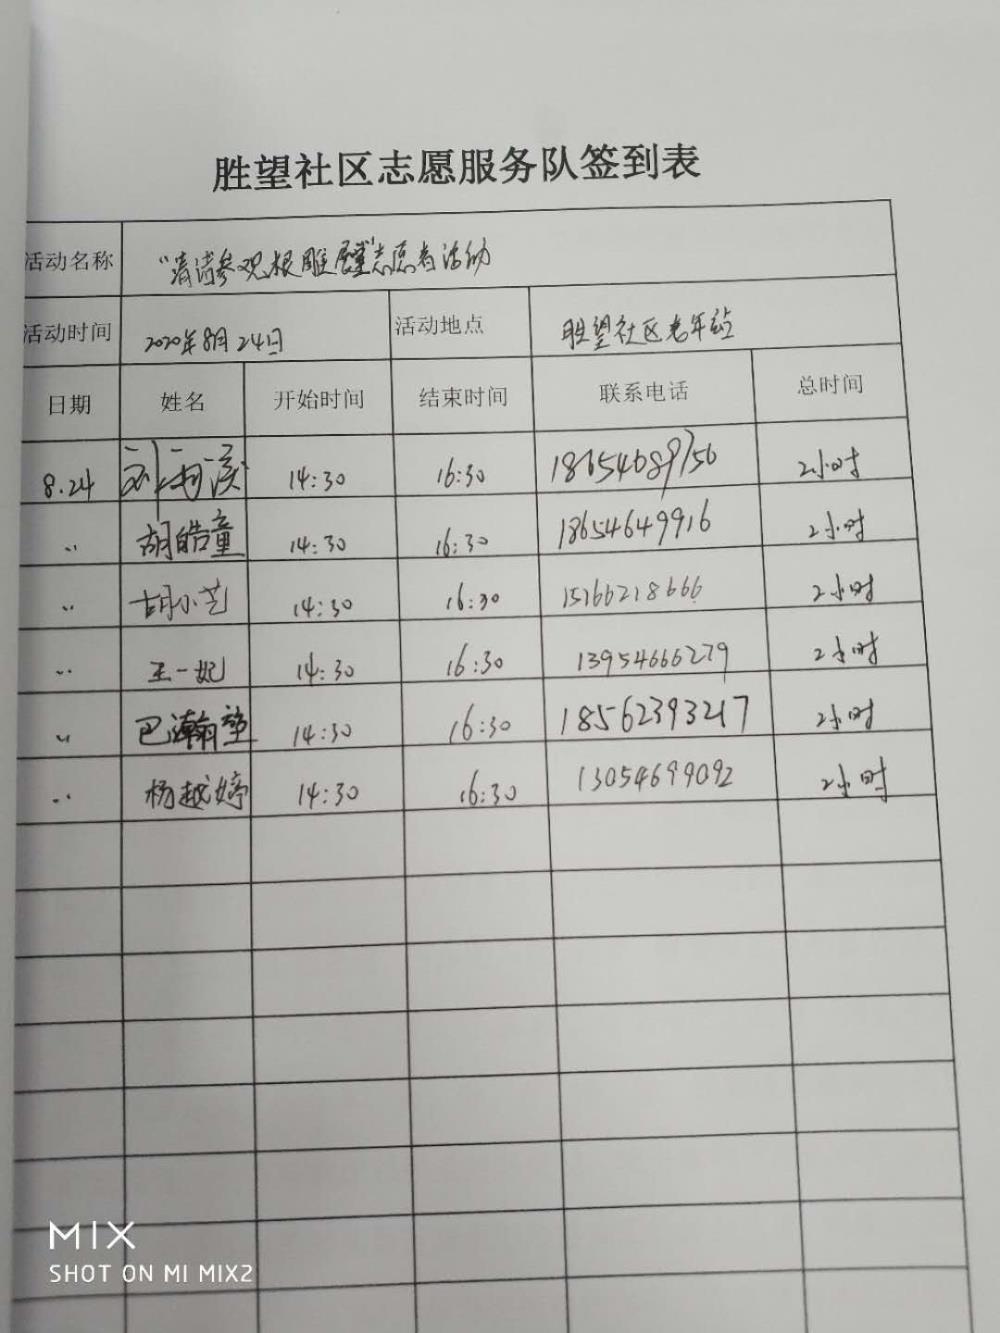 胜望社区志愿服务队签到表
活动名称 参观根雕展室"志愿者活动
活动时间 2020年8月24日 活动地点 胜望社区老年站
日期 姓名 开始时间 结束时间 联系电话 总时间
8.24 14:30 16:30 18654689756 2小时
〃 胡皓童 14:30 16:30 18654649916 2小时
〃 胡小艺 14:30 16:30 15166218666 2小时
〃 王一妃 14:30 16:30 13954666279 2小时
〃 巴瀚 14:30 16:30 18562393217 2小时
〃 杨越婷 14:30 16:30 13054699092 2小时
MIX
SHOT ON MI MIX2